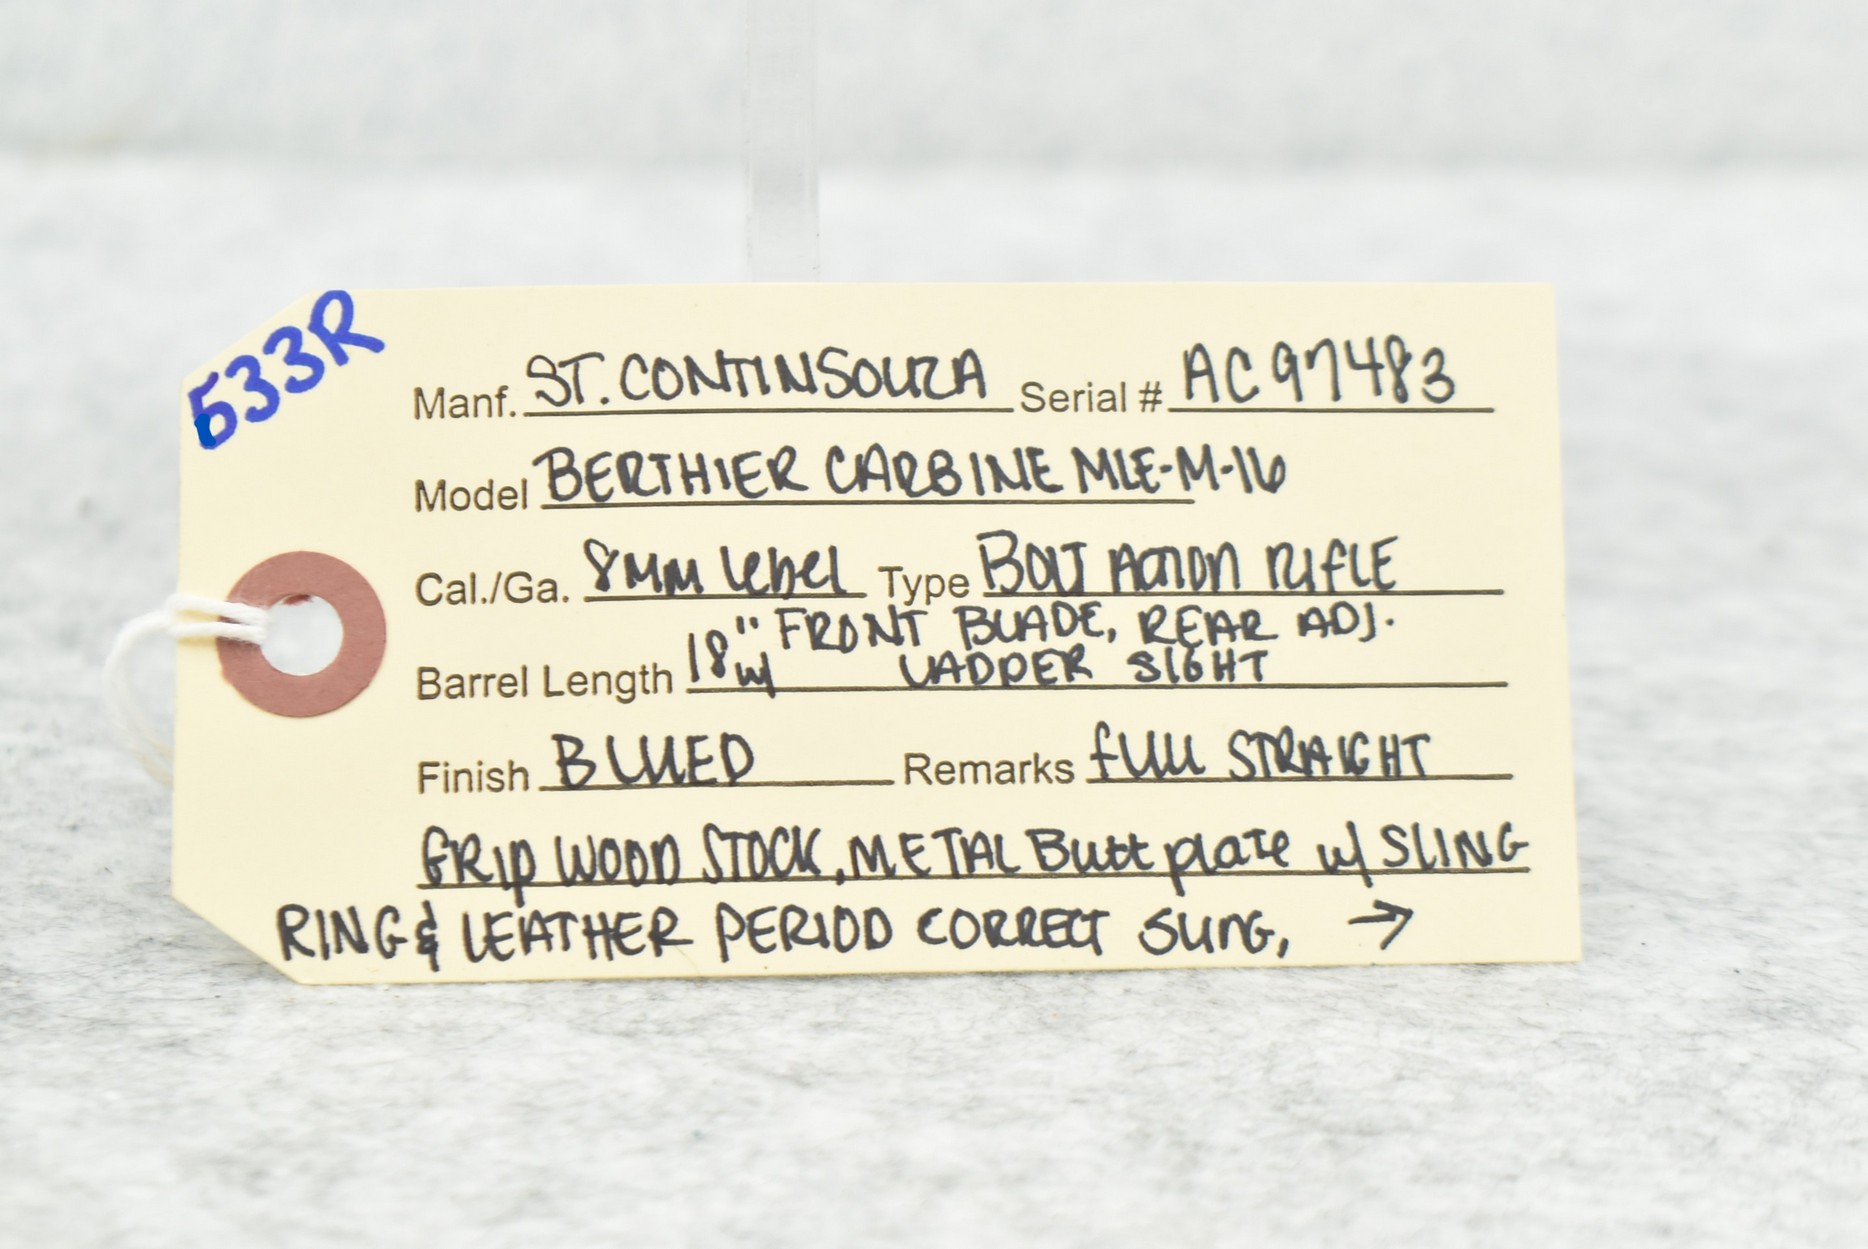 533R
Manf. ST. CONTINSOUZA Serial # AC97483
Model BERTHIER CARBINE MLE-M-16
Cal./Ga. 8MM Lebel Type BOLT ACTION RIFLE
Barrel Length 18" w/ FRONT BLADE, REAR ADJ.
LADDER SIGHT
Finish BLUED Remarks FULL STRAIGHT
GRIP WOOD STOCK, METAL Butt plate w/ SLING
RING & LEATHER PERIOD CORRECT SLING, →